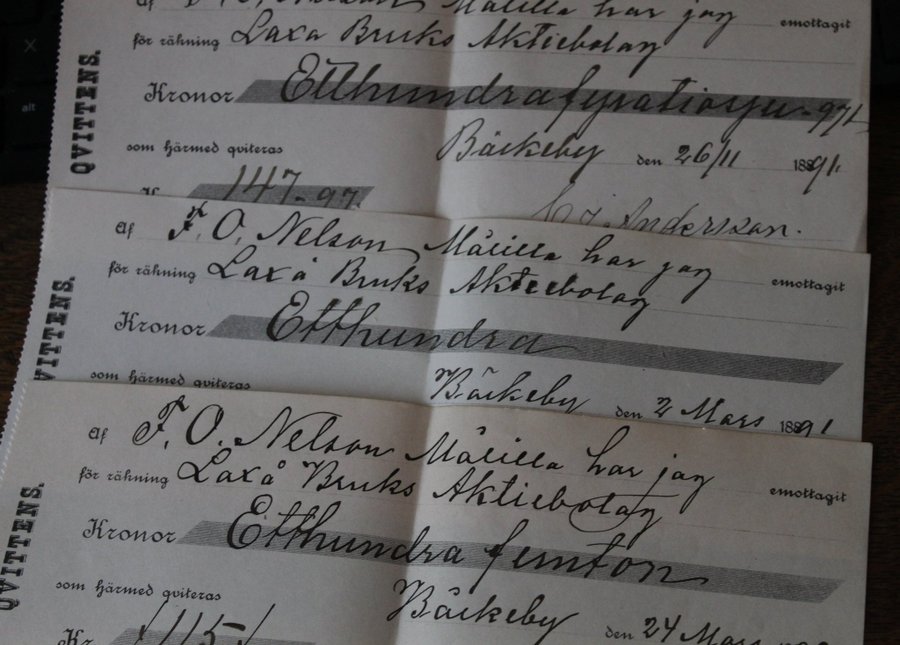 QVITTENS.
Målilla har jag emottagit
för räkning Laxå Bruks Aktiebolag
Kronor Etthundrafyratiosju-97/
som härmed qviteras Bäckeby den 26/11 1891.
Kr 147-97. Andersson.
Af F. O. Nelson Målilla har jag emottagit
för räkning Laxå Bruks Aktiebolag
VITTENS.
Kronor Etthundra
som härmed qviteras Bäckeby den 2 Mars 1891
Af F. O. Nelson Målilla har jag emottagit
för räkning Laxå Bruks Aktiebolag
QVITTENS.
Kronor Etthundra femton
som härmed qviteras Bäckeby den 24 Mars
Kr. /115/
alt